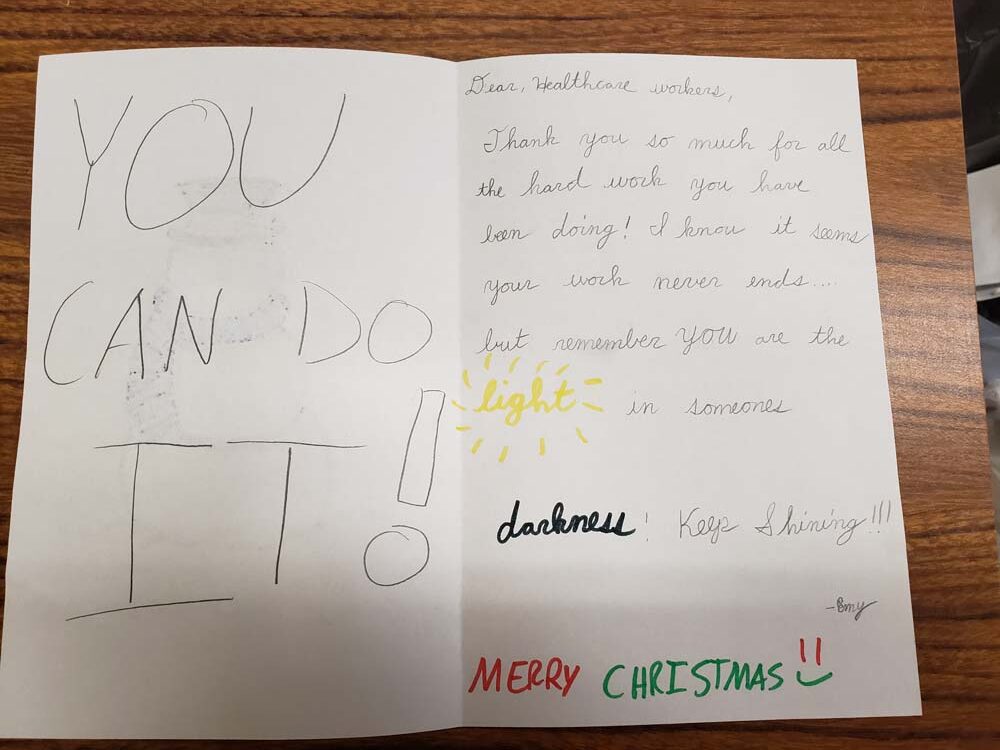 YOU
CAN DO
IT!
Dear, Healthcare workers,
Thank you so much for all
the hard work you have
been doing! I know it seems
your work never ends....
but remember YOU are the
light in someones
darkness! Keep Shining!!!
MERRY CHRISTMAS